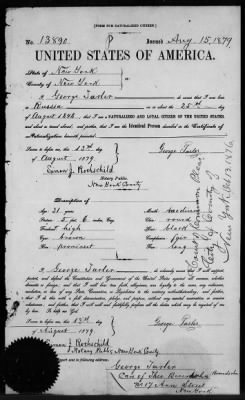 [FORM FOR NATURALIZED CITIZEN.]
No. 13890 Issued Aug 15, 1879
UNITED STATES OF AMERICA.
State of New York
County of New York
I George Tasler do swear that I was born in
Russia on the 25th day of
August 1848, that I am a NATURALIZED AND LOYAL CITIZEN OF THE UNITED STATES,
and about to travel abroad, and that I am the Identical Person described in the Certificate of
Naturalization herewith presented.
Sworn to before me this 13th day
of August 1879
George Tasler
Simon J. Rothschild
Notary Public,
New York County
Description of
Age 31 years
Stature 5 feet 6 inches Eng.
Forehead high
Eyes brown
Nose prominent
Mouth
Chin round
Hair black
Complexion fair
Face long
Court of Common Pleas
City & County of
New York Oct 13 1876
I George Tasler do solemnly swear that I will support,
protect, and defend the Constitution and Government of the United States against all enemies, whether
domestic or foreign, and that I will bear true faith, allegiance, and loyalty to the same, any ordinance,
resolution, or law of any State, Convention or Legislature to the contrary notwithstanding; and further,
that I do this with a full determination, pledge, and purpose, without any mental reservation or evasion
whatsoever; and further, that I will well and faithfully perform all the duties which may be required of me
by law: So help me God.
Sworn to before me this 13th day
of August 1879
George Tasler
Simon J. Rothschild
Notary Public New York County
George Tasler
Care of Theo
No 17 Ann Street
New York